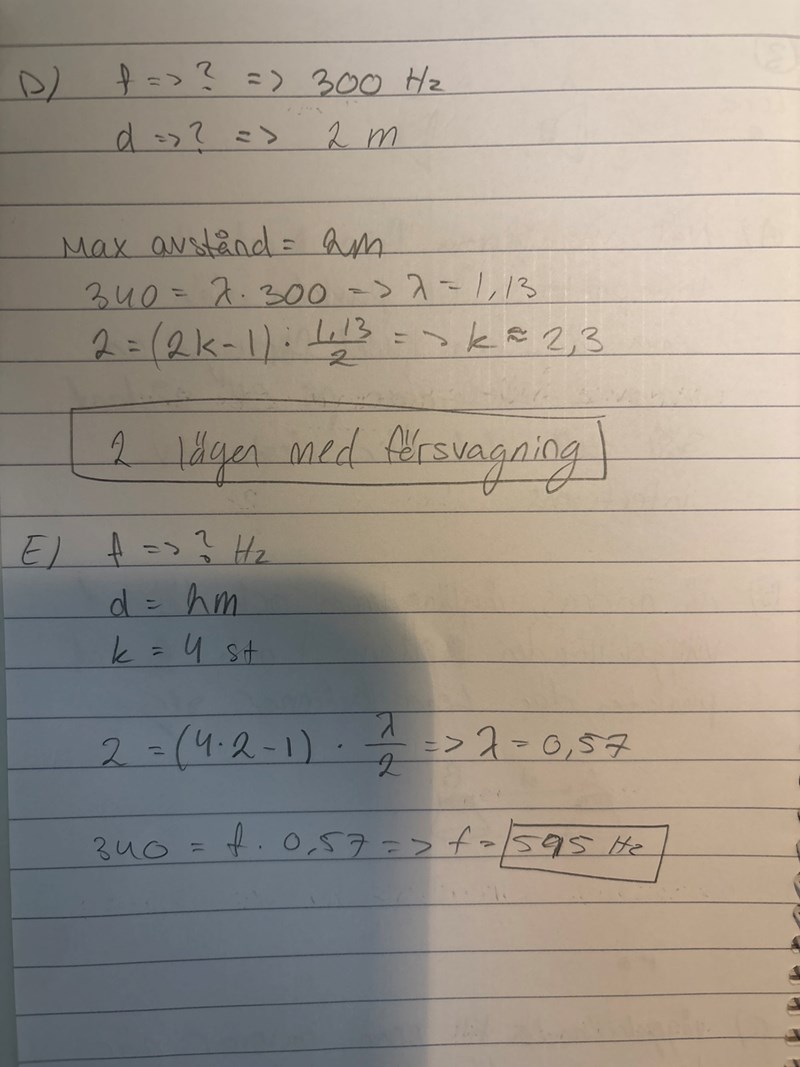 D) f => ? => 300 Hz
d => ? => 2 m
Max avstånd = 2m
340 = λ · 300 => λ = 1,13
2 = (2k - 1) · 1,13/2 => k ≈ 2,3
2 lägen med försvagning
E) f => ? Hz
d = 2m
k = 4 st
2 = (4·2-1) · λ/2 => λ = 0,57
340 = f · 0,57 => f = 595 Hz